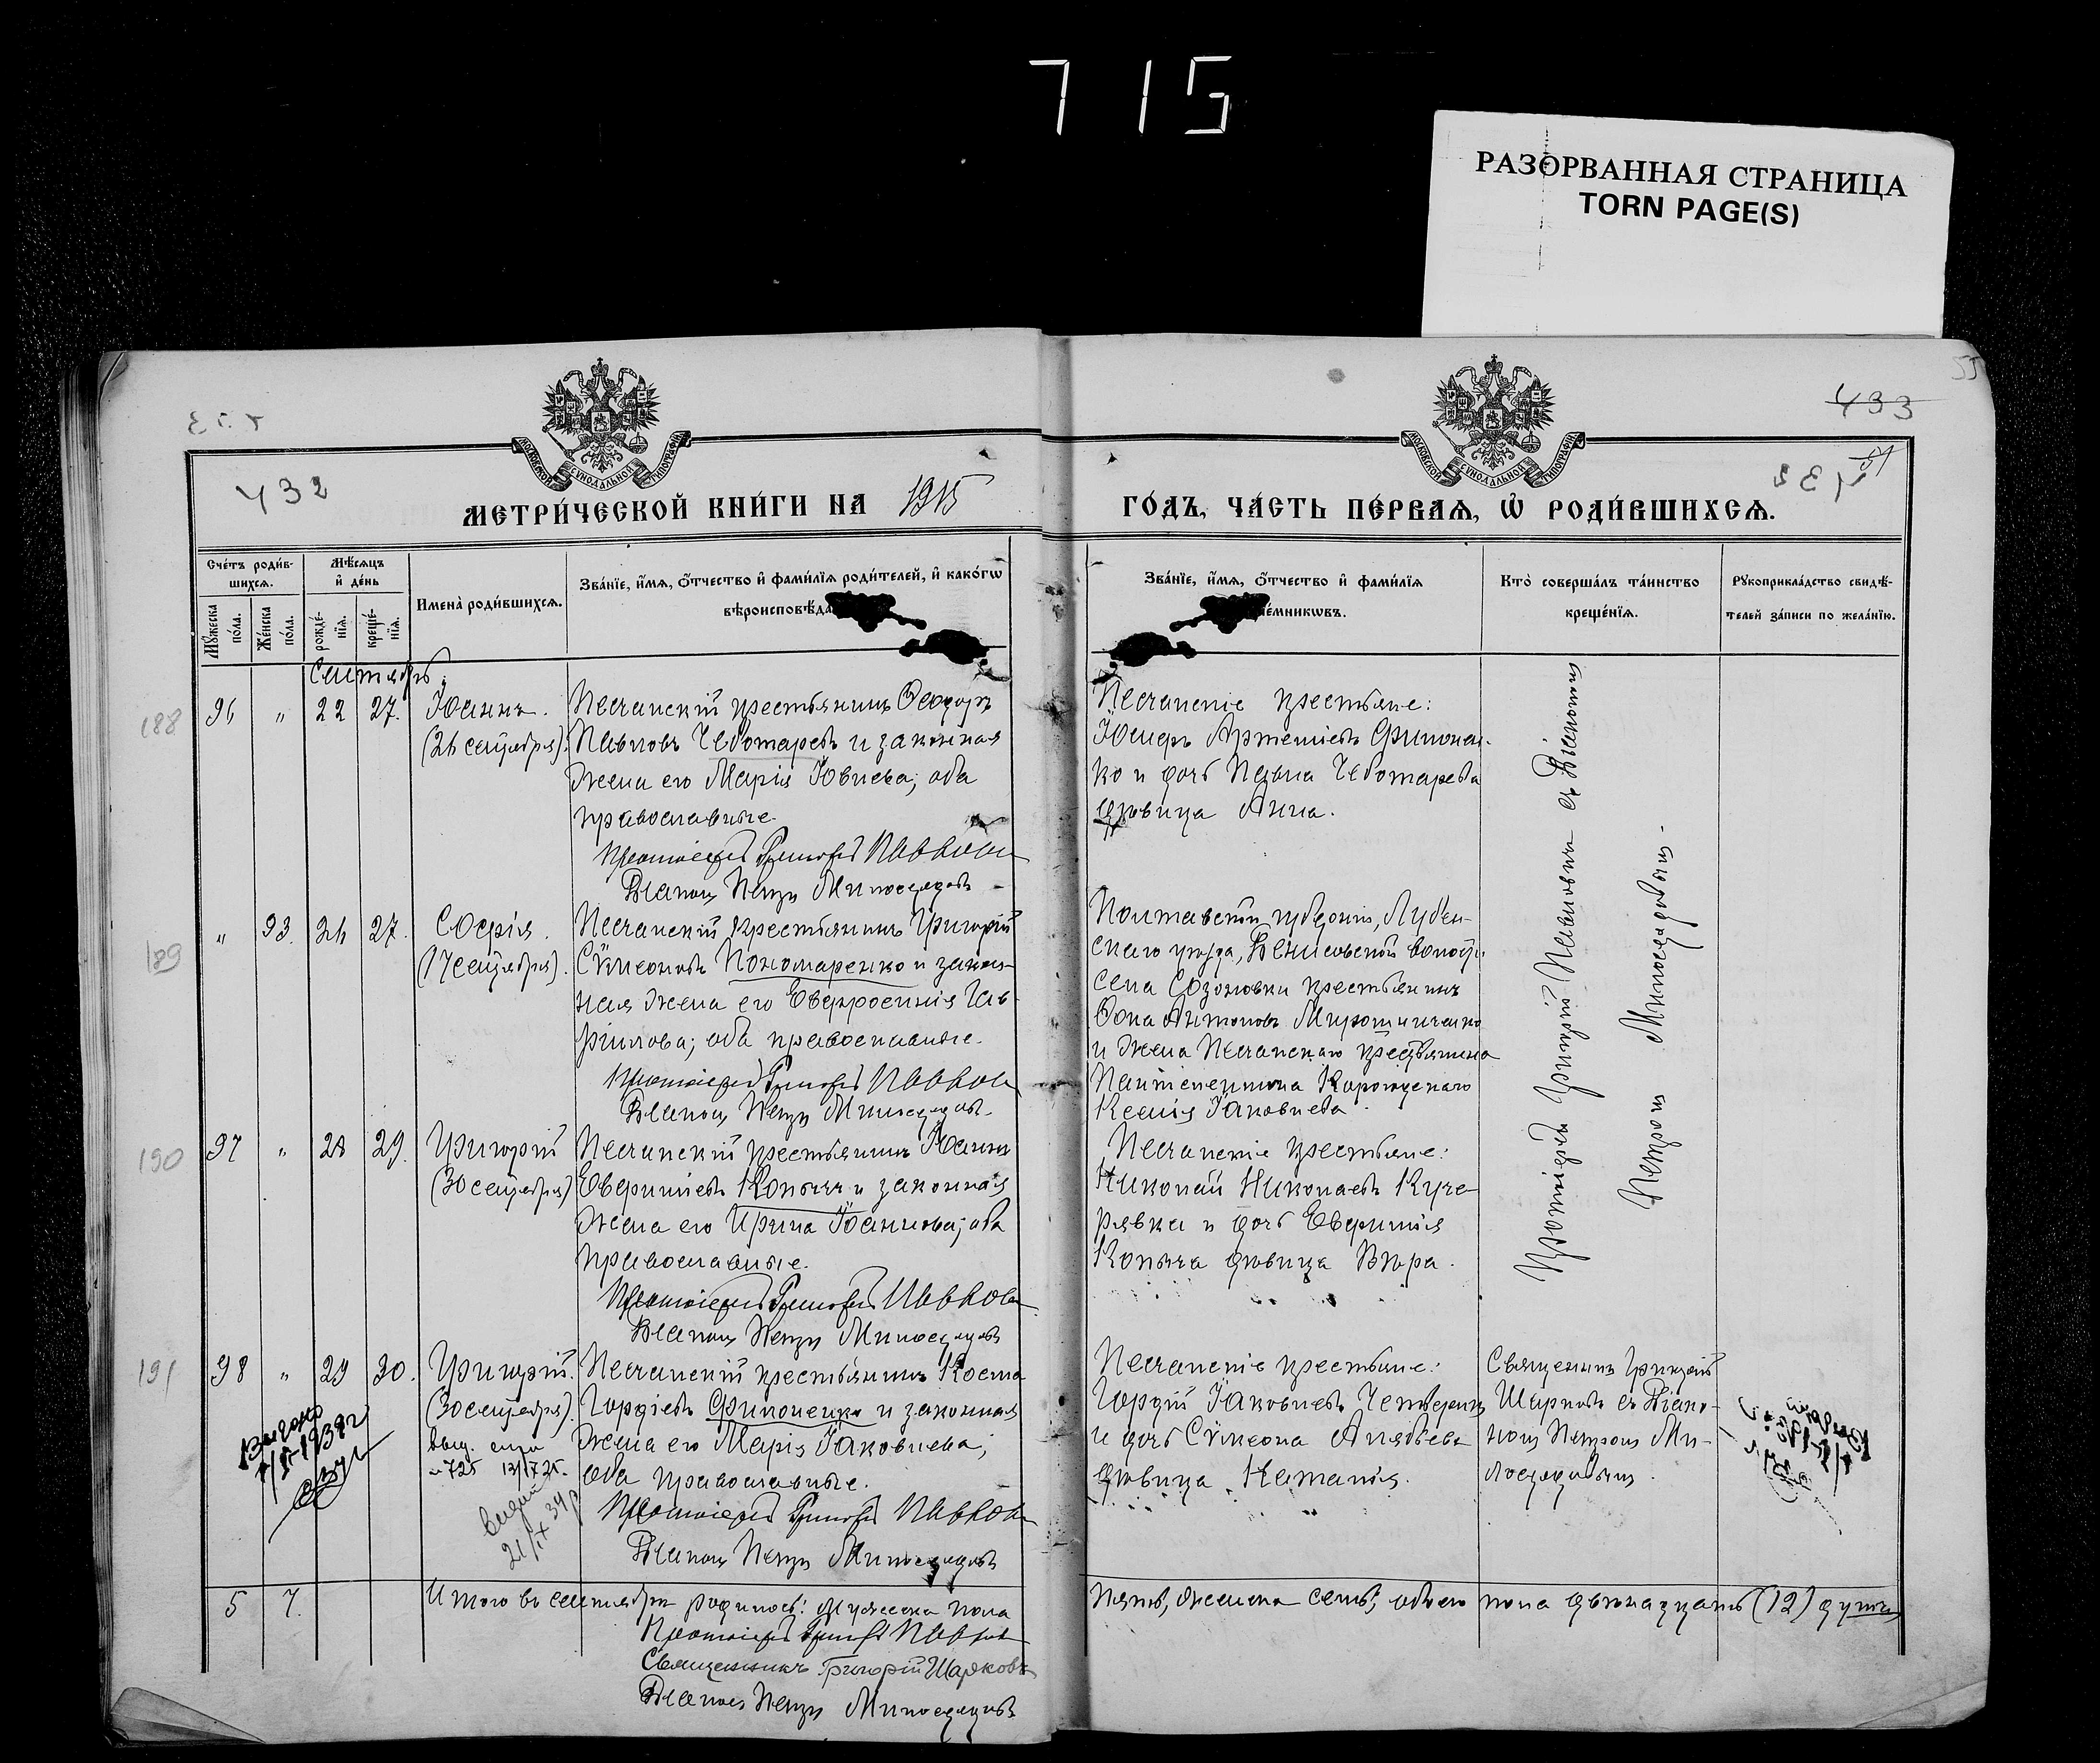 715
РАЗОРВАННАЯ СТРАНИЦА
TORN PAGE(S)
433
432
МЕТРИ́ЧЕСКОЙ КНИ́ГИ НА 1915
ГО́ДЪ, ЧА́СТЬ ПЕ́РВАЯ, Ѡ РОДИ́ВШИХСЯ.
Сче́тъ роди́в-
шихся.
Мѣ́сяцъ
и де́нь
Му́жеска
по́ла.
Же́нска
по́ла.
рожде́-
нїя.
креще́-
нїя.
Имена̀ роди́вшихся.
Зва́нїе, и́мя, о́тчество и фами́лїя роди́телей, и како́гѡ
вѣроисповѣ́да
Зва́нїе, и́мя, о́тчество и фами́лїя
е́мникѡвъ.
Кто̀ соверша́лъ та́инство
креще́нїя.
Рукоприкла́дство свидѣ́-
телей за́писи по жела́нїю.
Сентябрь
188
96 " 22 27.
Іоаннъ.
(26 сентября).
Песчанскій крестьянинъ Ѳеодоръ
Павловъ Чеботаревъ и законная
жена его Марія Іовлева; оба
православные.
Протоіерей Григорій Павловъ
Діаконъ Петръ Милосердовъ
Песчанскіе крестьяне:
Іосифъ Артемьевъ Филонен-
ко и дочь Павла Чеботарева
дѣвица Анна.
Протоіерей Григорій Павловъ съ Діакономъ
Петромъ Милосердовымъ.
189
" 93. 26 27.
Софія.
(17 сентября).
Песчанскій крестьянинъ Григорій
Сѵмеоновъ Пономаренко и закон-
ная жена его Евфросинія Гав-
ріилова; оба православные.
Протоіерей Григорій Павловъ
Діаконъ Петръ Милосердовъ.
Полтавской губерніи, Лубен-
скаго уѣзда, Денисовской волости
села Созоновки крестьянинъ
Ѳома Антоновъ Мирошниченко
и жена Песчанскаго крестьянина
Пантелеимона
Ксенія Іаковлева.
190
97 " 28 29.
Григорій
(30 сентября)
Песчанскій крестьянинъ Іоаннъ
Евфиміевъ Копыча и законная
жена его Ирина Іоаннова; оба
православные.
Протоіерей Григорій Павловъ
Діаконъ Петръ Милосердовъ
Песчанскіе крестьяне:
Николай Николаевъ Куче-
рявка и дочь Евфимія
Копыча дѣвица Вѣра.
191
98 " 29 30.
Григорій.
(30 сентября).
Песчанскій крестьянинъ Косма
Гордіевъ Филоненко и законная
жена его Марія Іаковлева;
оба православные.
Протоіерей Григорій Павловъ
Діаконъ Петръ Милосердовъ
Песчанскіе крестьяне:
Гордій Іаковлевъ Четверикъ
и дочь Сѵмеона
дѣвица Наталія.
Священникъ Григорій
Шарковъ съ Діако-
номъ Петромъ Ми-
лосердовымъ.
5 7.
Итого въ сентябрѣ родилось: мужеска пола
пять, женска семь, обоего пола двѣнадцать (12) душъ
Протоіерей Григорій Павловъ
Священникъ Григорій Шарковъ
Діаконъ Петръ Милосердовъ